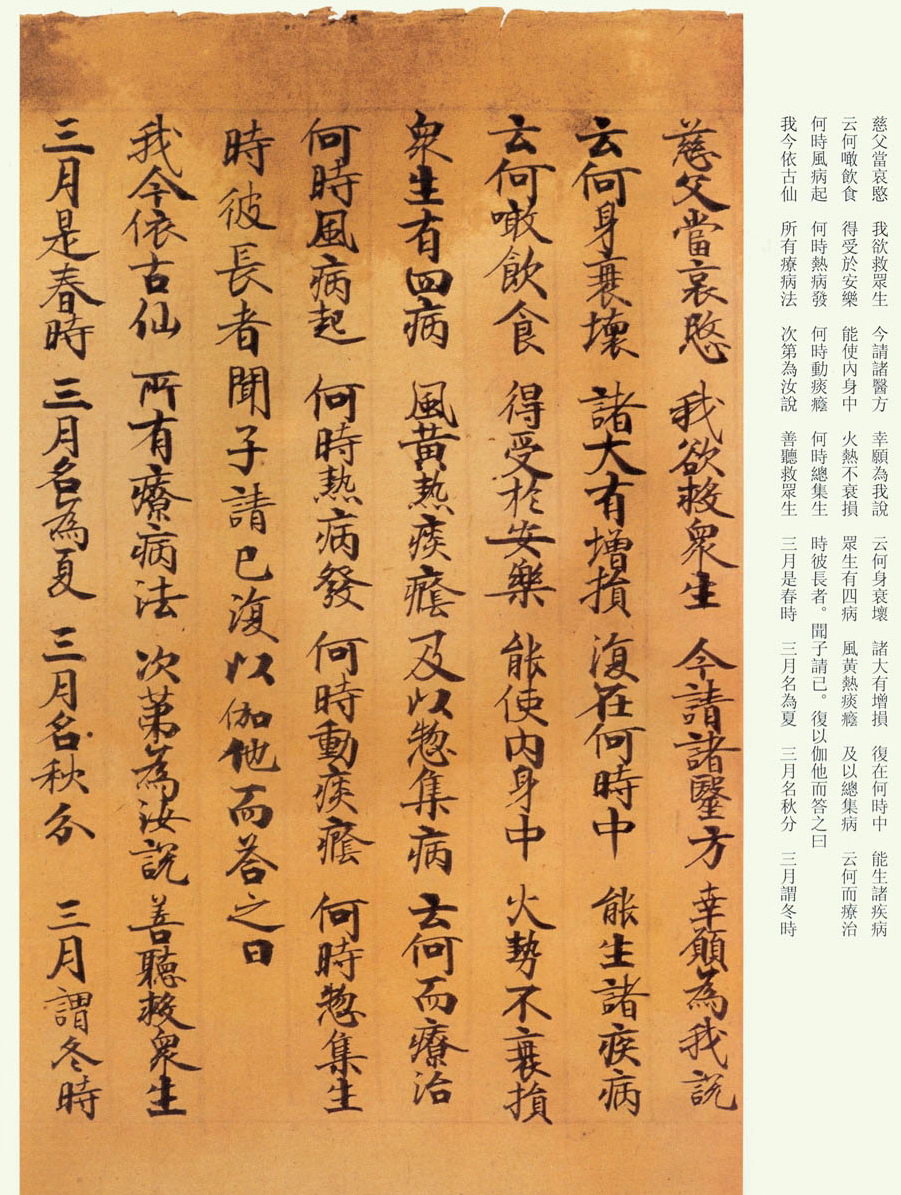 慈父當哀愍 我欲救眾生 今請諸醫方 幸願為我說 云何身衰壞 諸大有增損 復在何時中 能生諸疾病
云何噉飲食 得受於安樂 能使內身中 火熱不衰損 眾生有四病 風黃熱痰癊 及以總集病 云何而療治
何時風病起 何時熱病發 何時動痰癊 何時總集生 時彼長者。聞子請已。復以伽他而答之曰
我今依古仙 所有療病法 次第為汝說 善聽救眾生 三月是春時 三月名為夏 三月名秋分 三月謂冬時
慈父當哀愍 我欲救衆生 今請諸醫方 幸願為我說
云何身衰壞 諸大有增損 復在何時中 能生諸疾病
云何噉飲食 得受於安樂 能使內身中 火勢不衰損
衆生有四病 風黃熱痰癊 及以惣集病 云何而療治
何時風病起 何時熱病發 何時動痰癊 何時惣集生
時彼長者聞子請已復以伽他而答之曰
我今依古仙 所有療病法 次第為汝說 善聽救衆生
三月是春時 三月名為夏 三月名秋分 三月謂冬時